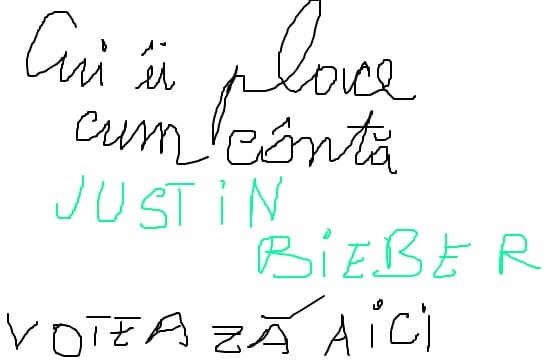 Cui îi place
cum cântă
JUSTiN
BiEBER
VOTEAZĂ AiCi